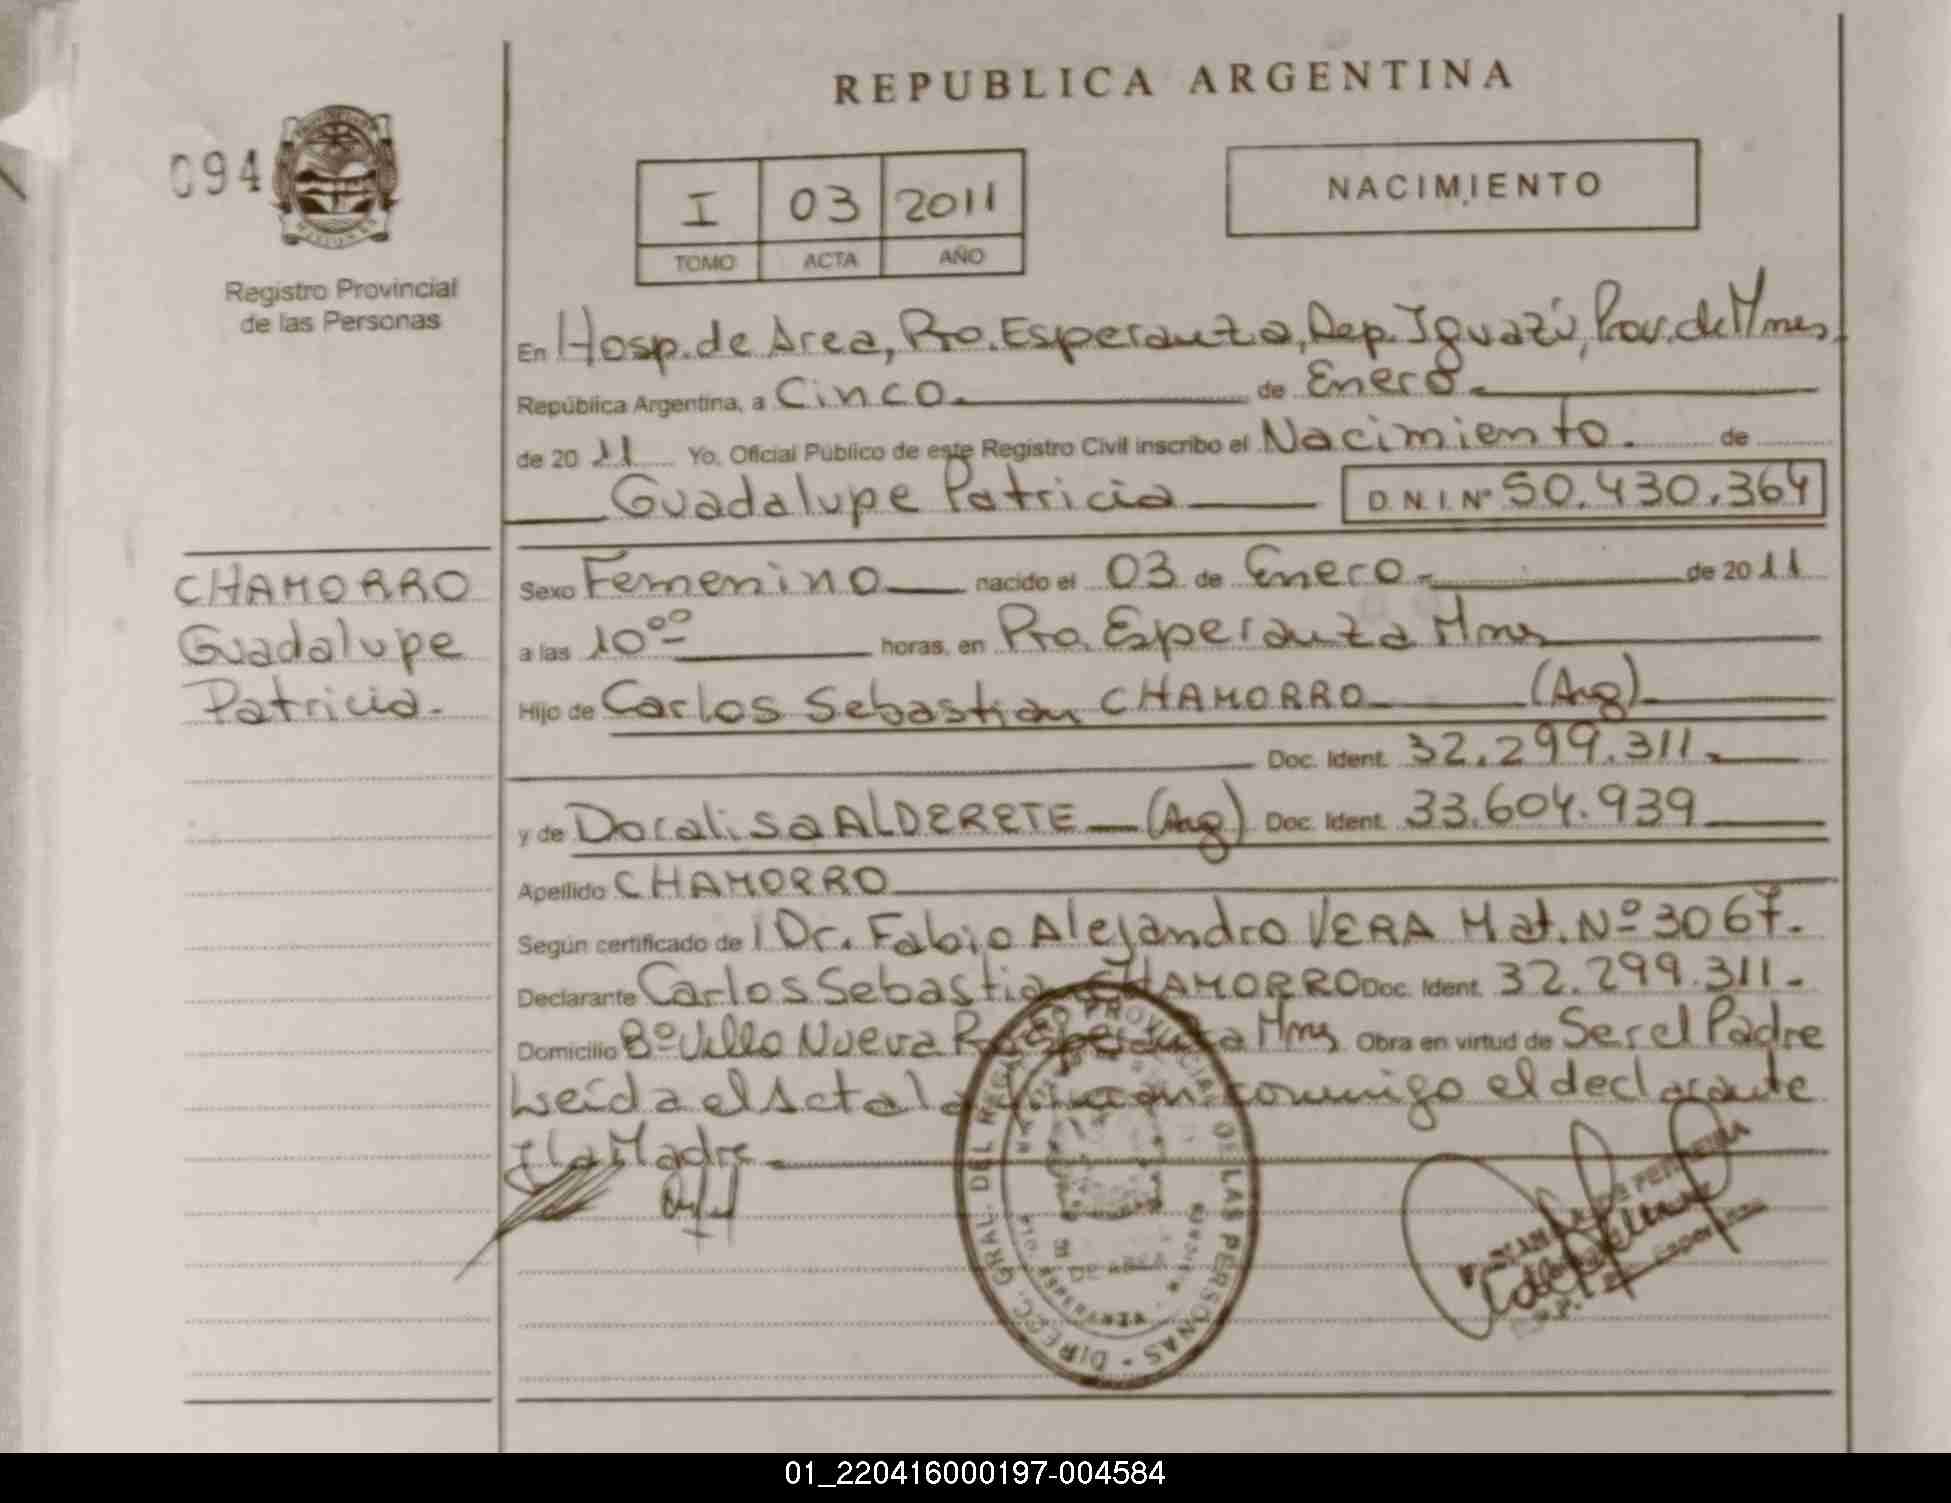 REPUBLICA ARGENTINA
094
I 03 2011
TOMO ACTA AÑO
NACIMIENTO
Registro Provincial
de las Personas
En Hosp. de Area, Pto. Esperanza, Dep. Iguazú, Prov. de Mnes
República Argentina, a Cinco. de Enero.
de 20 11 Yo, Oficial Público de este Registro Civil inscribo el Nacimiento. de
Guadalupe Patricia D.N.I. Nº 50.430.364
CHAMORRO
Guadalupe
Patricia.
Sexo Femenino nacido el 03 de Enero. de 20 11
a las 10 00 horas, en Pto. Esperanza Mnes
Hijo de Carlos Sebastian CHAMORRO (Arg)
Doc. Ident. 32.299.311.
y de Doralisa ALDERETE (Arg) Doc. Ident. 33.604.939
Apellido CHAMORRO
Según certificado de Dr. Fabio Alejandro VERA Mat. Nº 3067.
Declarante Carlos Sebastian CHAMORRO Doc. Ident. 32.299.311.
Domicilio Bº Villa Nueva Pto Esperanza Mnes Obra en virtud de Ser el Padre
Leída el Acta la firman conmigo el declarante
y la Madre.
DIREC. GRAL. DEL REGISTRO PROVINCIAL DE LAS PERSONAS
01_220416000197-004584